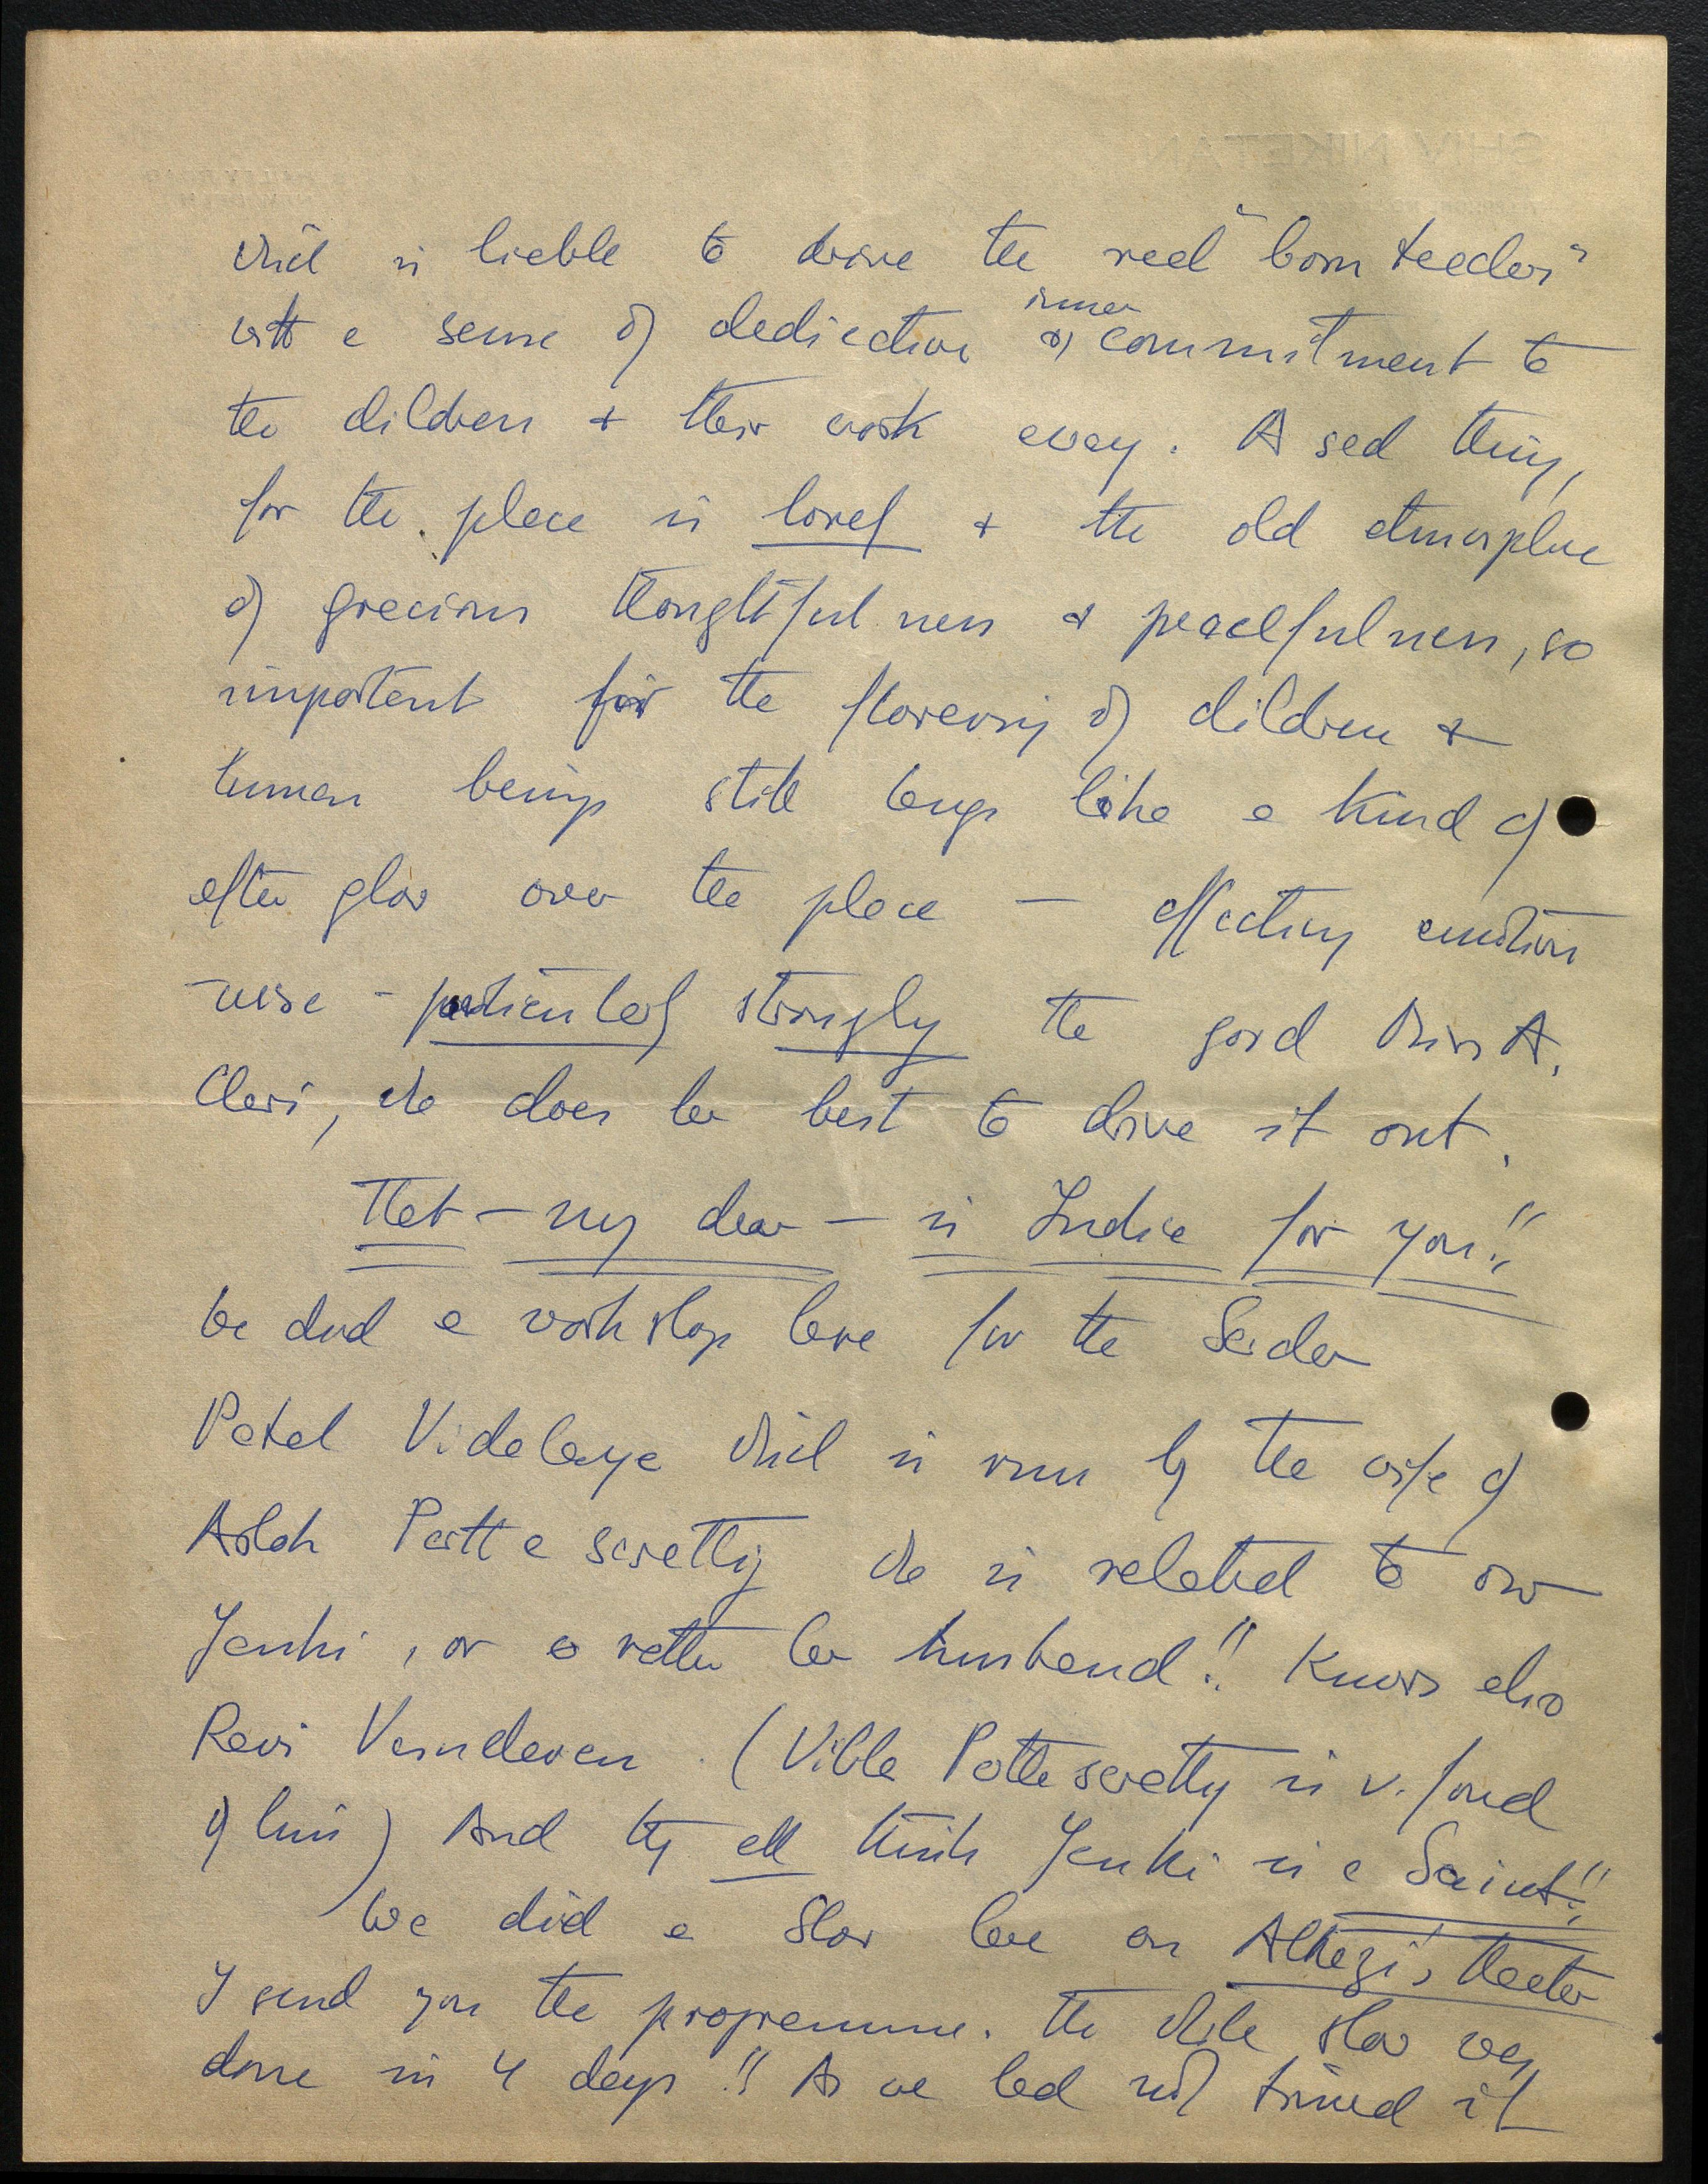 which is liable to drive the real "born teacher"
with a sense of dedication & inner commitment to
the children & their work away. A sad thing,
for the place is lovely & the old atmosphere
of gracious thoughtfulness & peacefulness, so
important for the flowering of children &
human beings still hangs like a kind of
after glow over the place — affecting emotion
-wise - particularly strongly the good Miss A.
Chari, who does her best to drive it out.
That — my dear — is India for you!!
We did a workshop here for the Sardar
Patel Vidalaya which is run by the wife of
Ashok Parthasarathy who is related to our
Janki, or rather her husband!! Knows also
Ravi (Vibha Parthasarathy is v. fond
of him) And they all think Janki is a Saint!!
We did a show here on Alkazi's theater
I send you the programme. The whole show was
done in 4 days!! As we had not timed it
SHIV NIKETAN